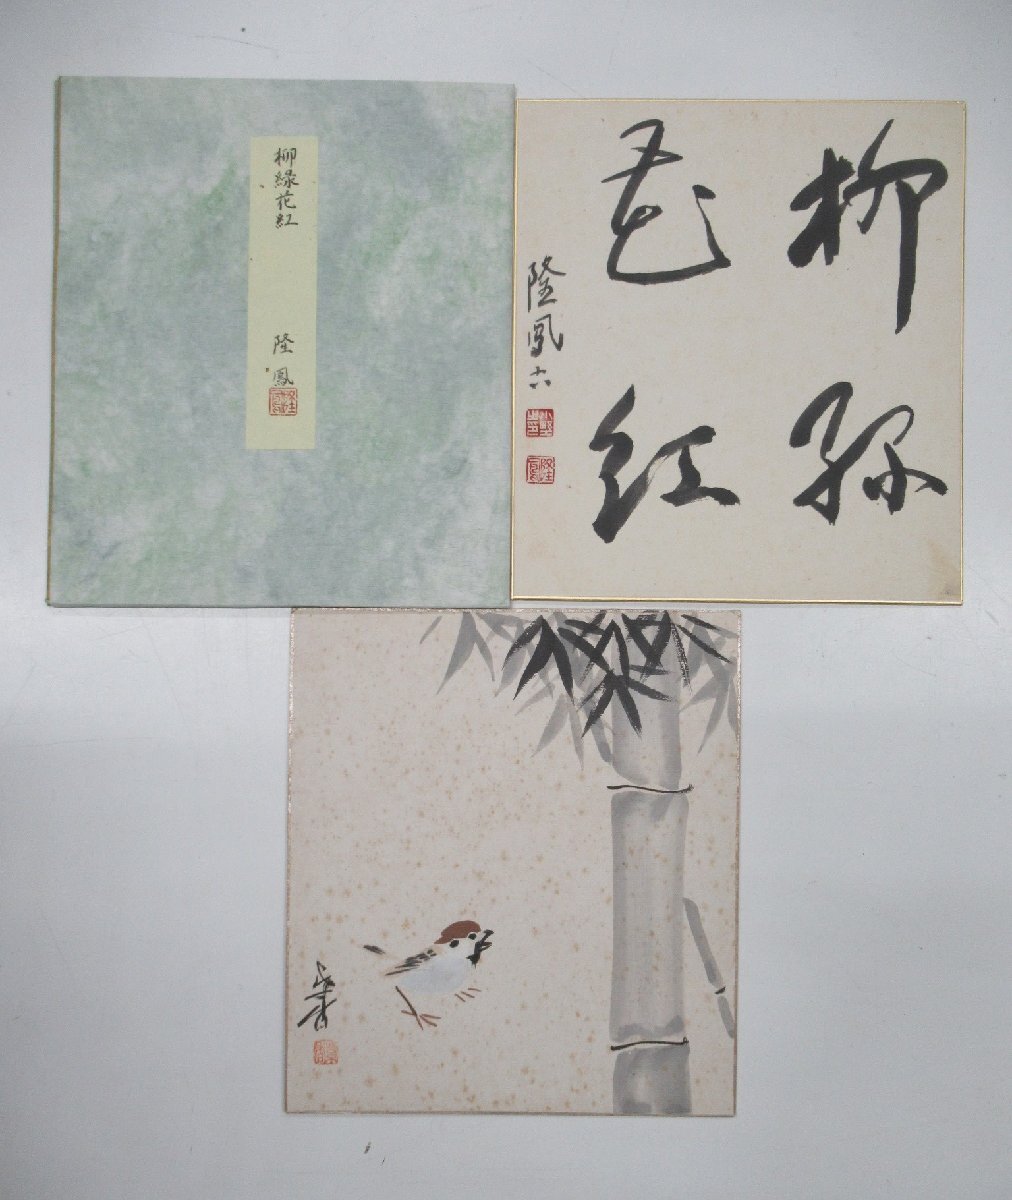 柳緑花紅
隆鳳
柳緑
花紅
隆鳳六